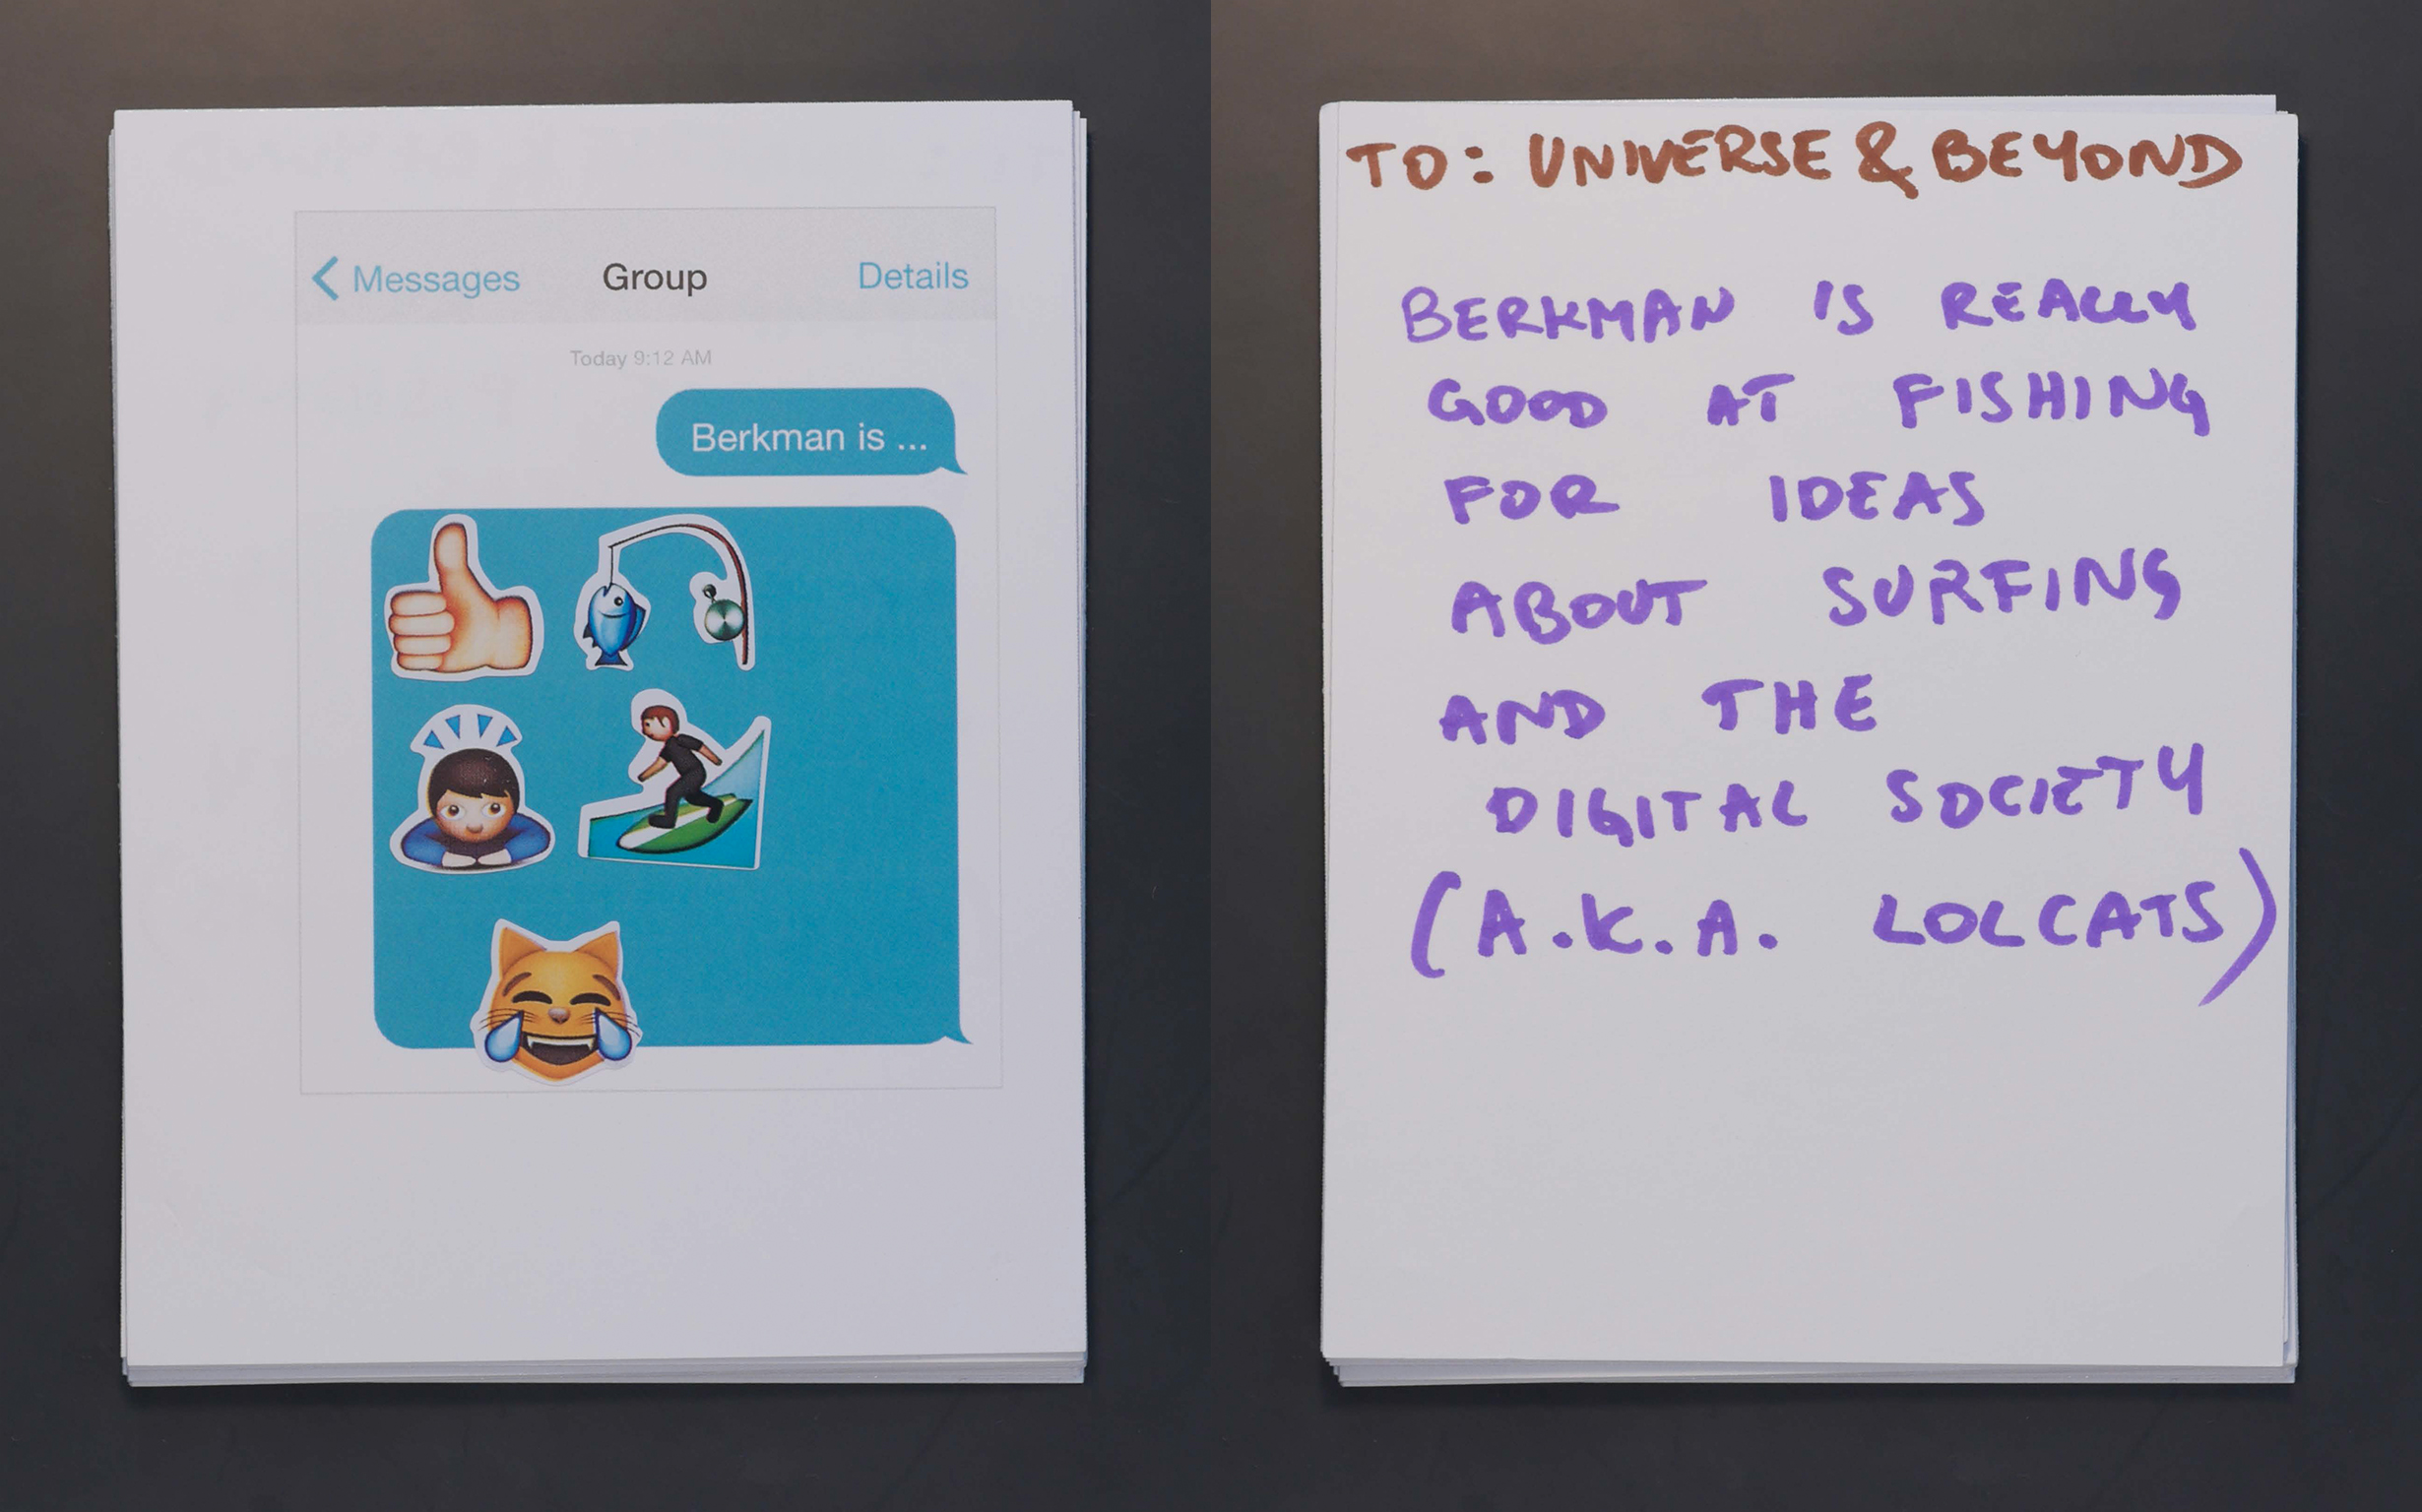 Messages Group Details
Today 9:12 AM
Berkman is ...
TO: UNIVERSE & BEYOND
BERKMAN IS REALLY
GOOD AT FISHING
FOR IDEAS
ABOUT SURFING
AND THE
DIGITAL SOCIETY
(A.K.A. LOLCATS)